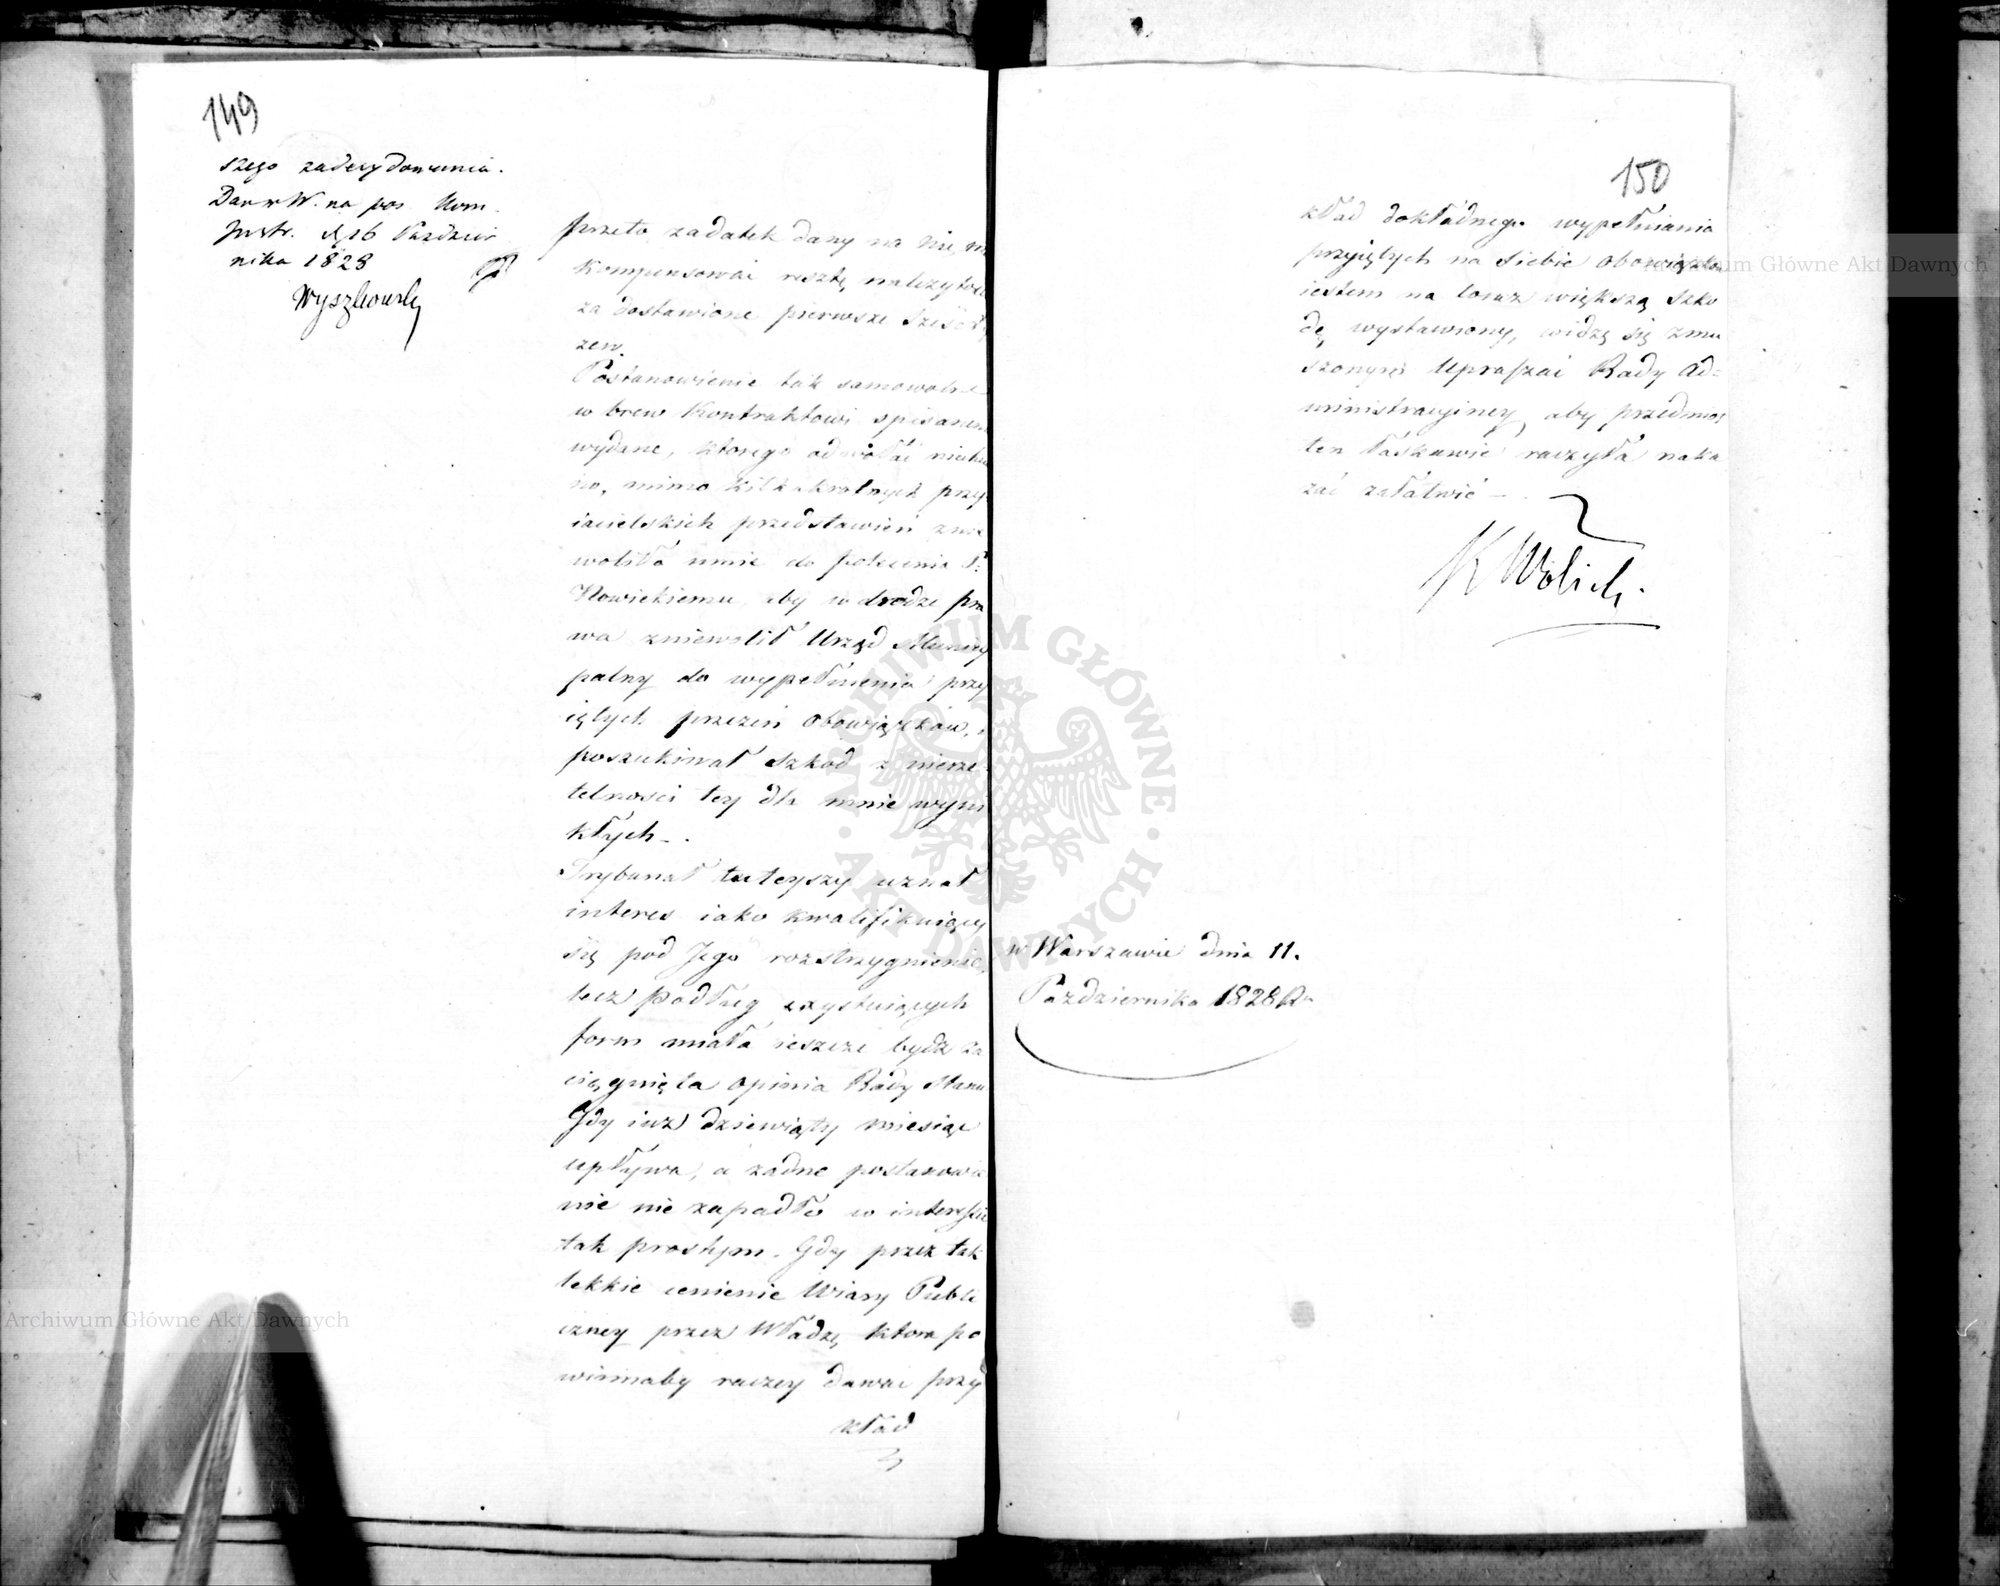 149
szego zadecydowania.
Dan w W. na pos. Kom.
Instr. d. 16 Paździer
nika 1828
Wyszkowski
przeto zadatek dany na nie,
kompensować resztę należytoś
za dostawione pierwsze sześć
zew.
Postanowienie tak samowolne
w brew Kontraktowi spisanem
wydane, ktorego odwołać niechcia
no, mimo kilkakrotnych przy
iacielskich przedstawień znie
woliło mnie do polecenia P.
Nowickiemu, aby w drodze pra
wa zniewolił Urząd Municy
palny do wypełnienia przy
iętych przezeń obowiązków, i
poszukiwał szkód z nierze
telności tey dla mnie wyni
kłych.
Trybunał tuteyszy uznał
interes iako kwalifikuiący
się pod Jego rozstrzygnienie,
lecz podług exystuiących
form miała ieszcze bydź za
ciągnięta opinia Rady Stanu
Gdy iuż dziewiąty miesiąc
upływa, a żadne postanowie
nie nie zapadło w interessie
tak prostym. Gdy przez tak
lekkie cenienie Wiary Publi
czney przez Władzę, ktora po
winnaby raczey dawać przy
kład
150
kład dokładnego wypełniania
przyiętych na siebie obowiązków
iestem na coraz większą szko
dę wystawiony, widzę się zmu
szonym Upraszać Rady Ad=
ministracyiney, aby przedmiot
ten łaskawie raczyła naka
zać załatwić
K Wölich.
w Warszawie dnia 11.
Października 1828 R
Archiwum Główne Akt Dawnych
Archiwum Główne Akt Dawnych
ARCHIWUM GŁÓWNE AKT DAWNYCH